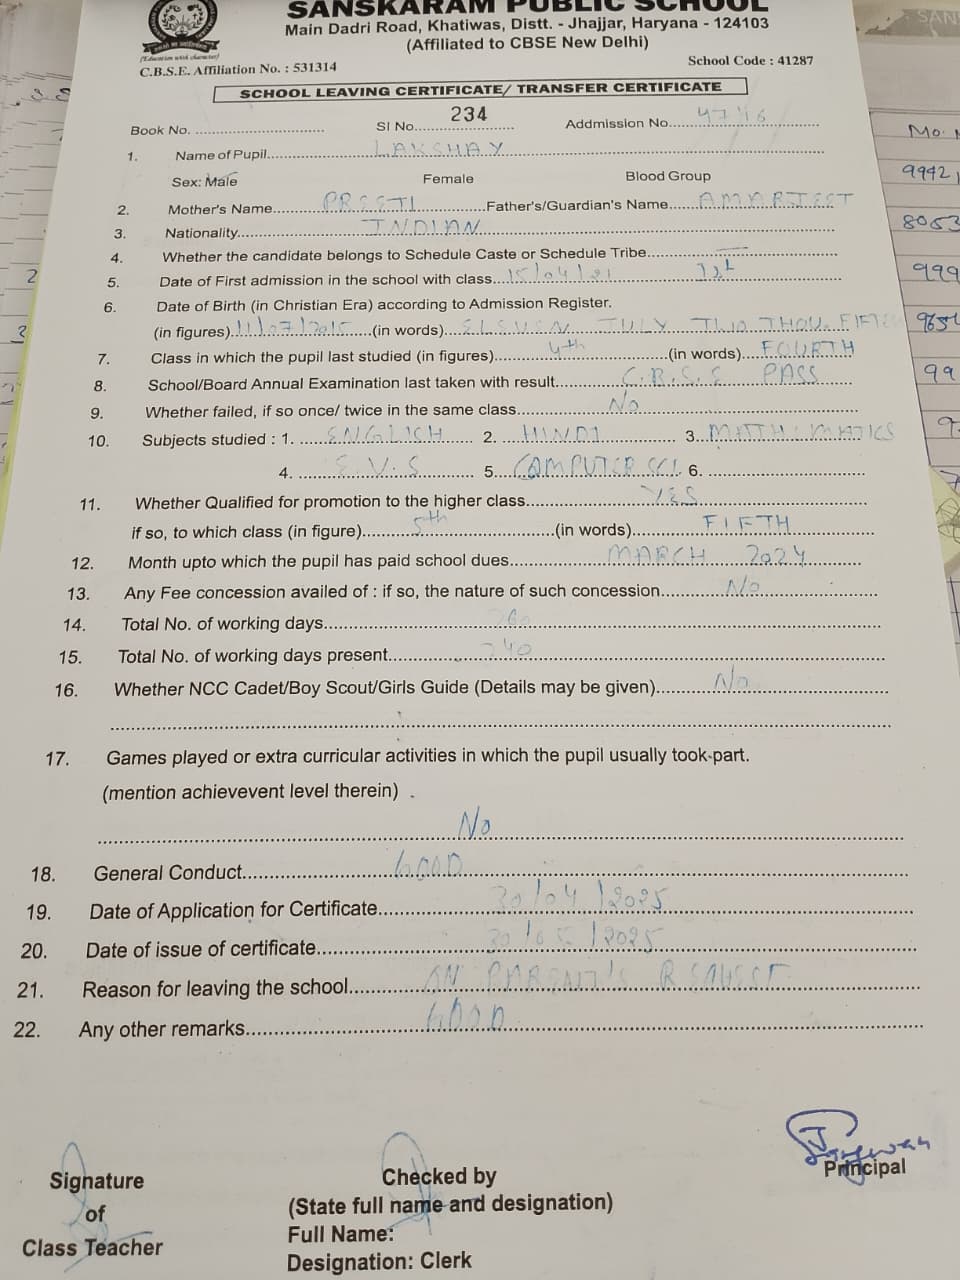 SANSKARAM PUBLIC SCHOOL
Main Dadri Road, Khatiwas, Distt. - Jhajjar, Haryana - 124103
(Affiliated to CBSE New Delhi)
(Education with character)
C.B.S.E. Affiliation No. : 531314 School Code : 41287
SCHOOL LEAVING CERTIFICATE/ TRANSFER CERTIFICATE
Book No. Sl No. 234 Addmission No.
1. Name of Pupil LAKSHAY
Sex: Male Female Blood Group
2. Mother's Name PREETI Father's/Guardian's Name AMARJEET
3. Nationality INDIAN
4. Whether the candidate belongs to Schedule Caste or Schedule Tribe —
5. Date of First admission in the school with class 15/04/21
6. Date of Birth (in Christian Era) according to Admission Register.
(in figures) 11/07/2015 (in words) ELEVEN JULY TWO THOU. FIFTEEN
7. Class in which the pupil last studied (in figures) 4th (in words) FOURTH
8. School/Board Annual Examination last taken with result C.B.S.E PASS
9. Whether failed, if so once/ twice in the same class No
10. Subjects studied : 1. ENGLISH 2. HINDI 3. MATHEMATICS
4. E.V.S 5. COMPUTER SCI. 6.
11. Whether Qualified for promotion to the higher class YES
if so, to which class (in figure) 5th (in words) FIFTH
12. Month upto which the pupil has paid school dues MARCH 2024
13. Any Fee concession availed of : if so, the nature of such concession No
14. Total No. of working days
15. Total No. of working days present 240
16. Whether NCC Cadet/Boy Scout/Girls Guide (Details may be given) No
17. Games played or extra curricular activities in which the pupil usually took-part.
(mention achievevent level therein)
No
18. General Conduct GOOD
19. Date of Application for Certificate 30/04/2025
20. Date of issue of certificate 30/05/2025
21. Reason for leaving the school ON PARENT'S REQUEST
22. Any other remarks GOOD
Signature
of
Class Teacher
Checked by
(State full name and designation)
Full Name:
Designation: Clerk
Principal